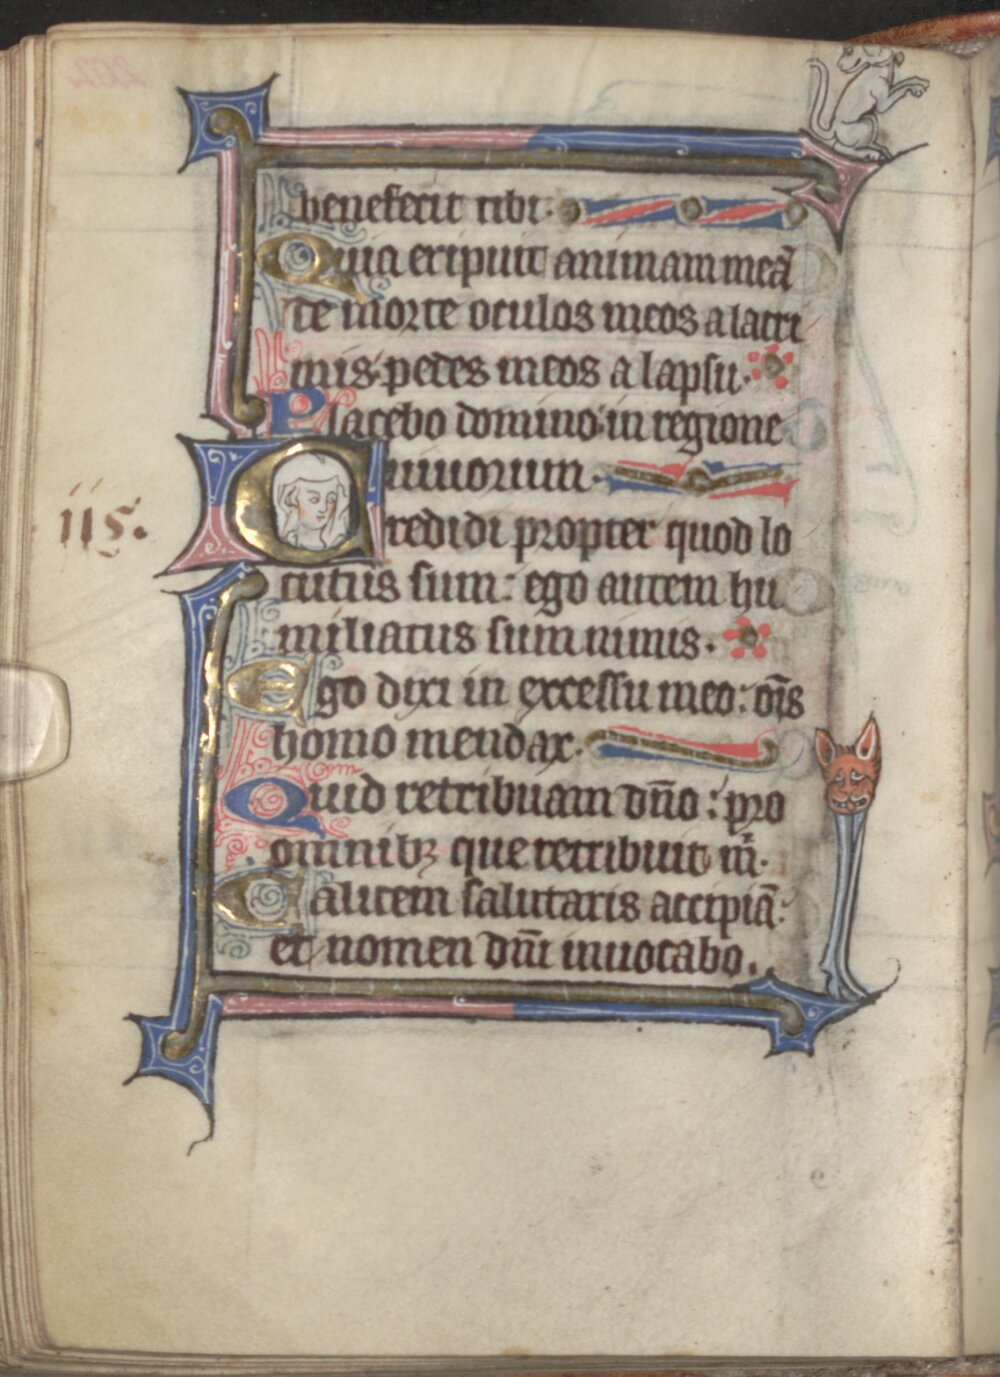 benefecit tibi.
Quia eripuit animam meā
de morte oculos meos a lacri
mis pedes meos a lapsu.
Placebo domino: in regione
uiuorum.
115.
Credidi propter quod lo
cutus sum: ego autem hu
miliatus sum nimis.
Ego dixi in excessu meo: oīs
homo mendax.
Quid retribuam dn̄o: pro
omnibꝫ que retribuit m̄.
Calicem salutaris accipiā:
et nomen dn̄i inuocabo.